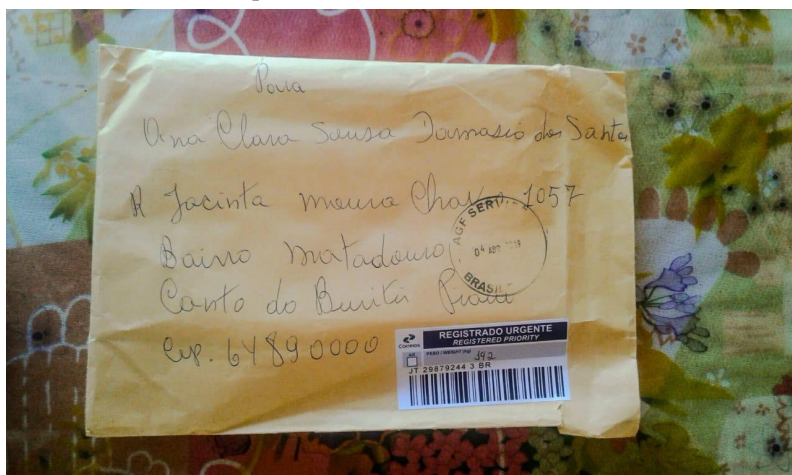 Para
Ana Clara Sousa Damasio dos Santos
R Jacinta moura Chaves 1057
Bairro matadouro
Canto do Buriti Piaui
Cep. 64890000
AGF SERT
04 ABR
BRASIL
Correios
REGISTRADO URGENTE
REGISTERED PRIORITY
AR
PESO / WEIGHT (kg) 342
JT 29879244 3 BR